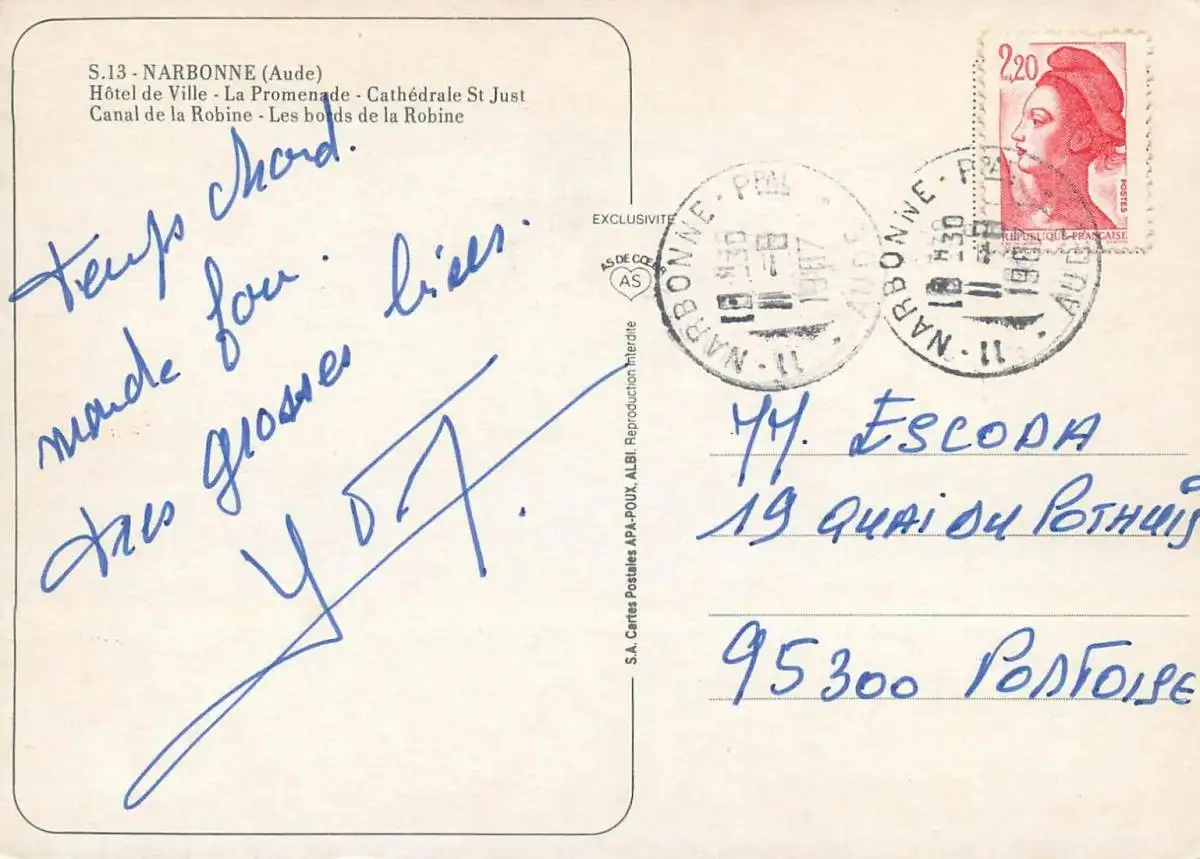 S.13 - NARBONNE (Aude)
Hôtel de Ville - La Promenade - Cathédrale St Just
Canal de la Robine - Les bords de la Robine
temps chaud.
monde fou.
tres grosses bises.
EXCLUSIVITE
AS DE CŒUR
AS
S.A. Cartes Postales APA-POUX, ALBI. Reproduction Interdite
2,20
POSTES
REPUBLIQUE FRANÇAISE
11 - NARBONNE - PPAL
18 H30
1987
AUDE
11 - NARBONNE - PPAL
18 H30
AUDE
MM. ESCODA
19 QUAI DU POTHUIS
95300 PONTOISE